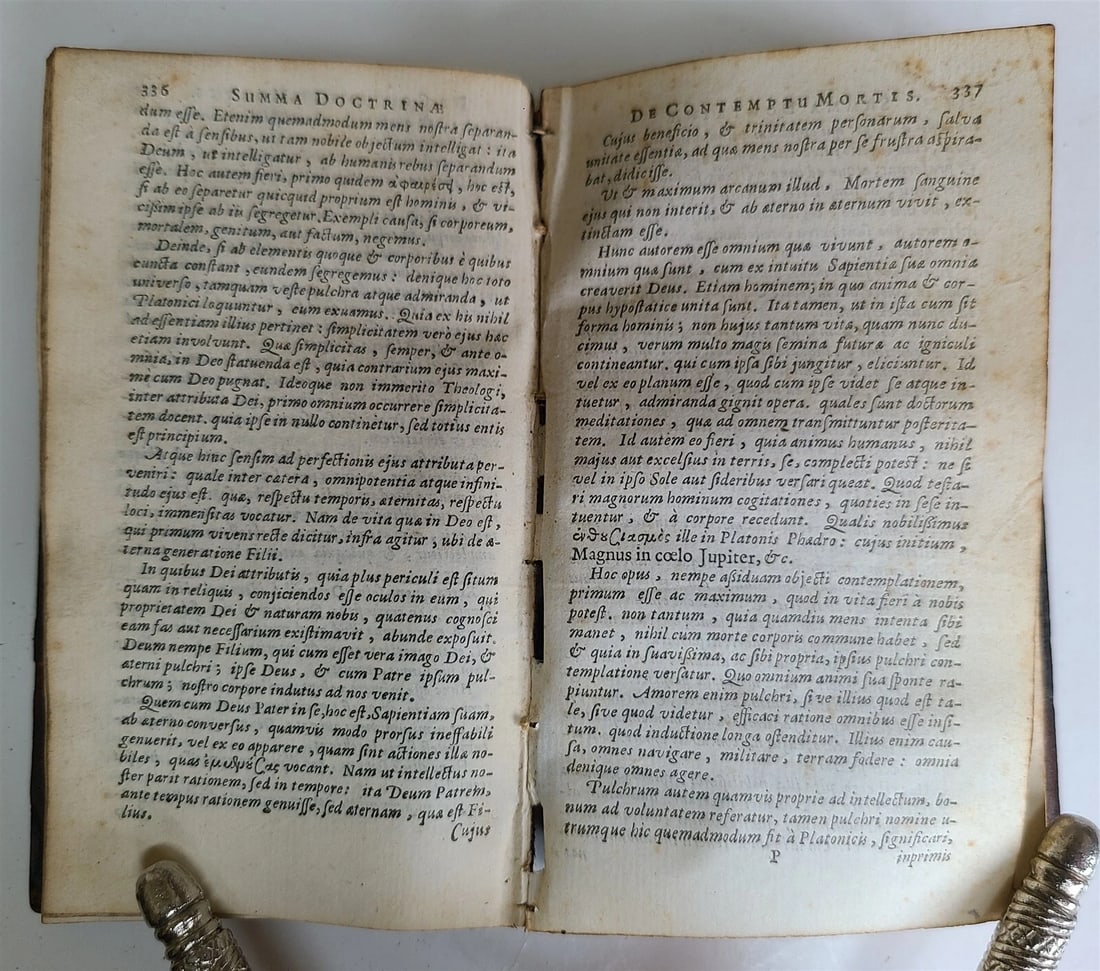 336 SUMMA DOCTRINÆ
dum esse. Etenim quemadmodum mens nostra separan-
da est à sensibus, ut tam nobile objectum intelligat: ita
Deum, ut intelligatur, ab humanis rebus separandum
esse. Hoc autem fieri, primo quidem ἀφαιρέσει, hoc est,
si ab eo separetur quicquid proprium est hominis, & vi-
cissim ipse ab iis segregetur. Exempli causa, si corporeum,
mortalem, genitum, aut factum, negemus.
Deinde, si ab elementis quoque & corporibus è quibus
cuncta constant, eundem segregemus: denique hoc toto
universo, tamquam veste pulchra atque admiranda, ut
Platonici loquuntur, eum exuamus. Quia ex his nihil
ad essentiam illius pertinet: simplicitatem verò ejus hæc
etiam involvunt. Quæ simplicitas, semper, & ante o-
mnia, in Deo statuenda est, quia contrarium ejus maxi-
me cum Deo pugnat. Ideoque non immerito Theologi,
inter attributa Dei, primo omnium occurrere simplicita-
tem docent. quia ipse in nullo continetur, sed totius entis
est principium.
Atque hinc sensim ad perfectionis ejus attributa per-
veniri: quale inter cætera, omnipotentia atque infini-
tudo ejus est. quæ, respectu temporis, æternitas, respectu
loci, immensitas vocatur. Nam de vita quæ in Deo est,
qui primum vivens recte dicitur, infra agitur; ubi de æ-
terna generatione Filii.
In quibus Dei attributis, quia plus periculi est situm
quam in reliquis, conjiciendos esse oculos in eum, qui
proprietatem Dei & naturam nobis, quatenus cognosci
eam fas aut necessarium existimavit, abunde exposuit.
Deum nempe Filium, qui cum esset vera imago Dei, &
æterni pulchri; ipse Deus, & cum Patre ipsum pul-
chrum; nostro corpore indutus ad nos venit.
Quem cum Deus Pater in se, hoc est, Sapientiam suam,
ab æterno conversus, quamvis modo prorsus ineffabili
genuerit, vel ex eo apparere, quam sint actiones illæ no-
biles, quas vocant. Nam ut intellectus no-
ster parit rationem, sed in tempore: ita Deum Patrem,
ante tempus rationem genuisse, sed æternam, quæ est Fi-
lius.
Cujus
DE CONTEMPTU MORTIS. 337
Cujus beneficio, & trinitatem personarum, salva
unitate essentiæ, ad quæ mens nostra per se frustra aspira-
bat, didicisse.
Ut & maximum arcanum illud, Mortem sanguine
ejus qui non interit, & ab æterno in æternum vivit, ex-
tinctam esse.
Hunc autorem esse omnium quæ vivunt, autorem o-
mnium quæ sunt, cum ex intuitu Sapientiæ suæ omnia
creaverit Deus. Etiam hominem; in quo anima & cor-
pus hypostatice unita sunt. Ita tamen, ut in ista cum sit
forma hominis; non hujus tantum vitæ, quam nunc du-
cimus, verum multo magis semina futuræ ac igniculi
contineantur. qui cum ipsa sibi jungitur, eliciuntur. Id
vel ex eo planum esse, quod cum ipse videt se atque in-
tuetur, admiranda gignit opera. quales sunt doctorum
meditationes, quæ ad omnem transmittuntur posterita-
tem. Id autem eo fieri, quia animus humanus, nihil
majus aut excelsius in terris, se, complecti potest: ne si
vel in ipso Sole aut sideribus versari queat. Quod testa-
ri magnorum hominum cogitationes, quoties in sese in-
tuentur, & à corpore recedunt. Qualis nobilissimus
ἐνθουσιασμὸς ille in Platonis Phædro: cujus initium,
Magnus in cœlo Jupiter, &c.
Hoc opus, nempe assiduam objecti contemplationem,
primum esse ac maximum, quod in vita fieri à nobis
potest. non tantum, quia quamdiu mens intenta sibi
manet, nihil cum morte corporis commune habet, sed
& quia in suavissima, ac sibi propria, ipsius pulchri con-
templatione versatur. Quo omnium animi sua sponte ra-
piuntur. Amorem enim pulchri, sive illius quod est ta-
le, sive quod videtur, efficaci ratione omnibus esse insi-
tum. quod inductione longa ostenditur. Illius enim cau-
sa, omnes navigare, militare, terram fodere: omnia
denique omnes agere.
Pulchrum autem quamvis proprie ad intellectum, bo-
num ad voluntatem referatur, tamen pulchri nomine u-
trumque hic quemadmodum fit à Platonicis, significari,
P inprimis